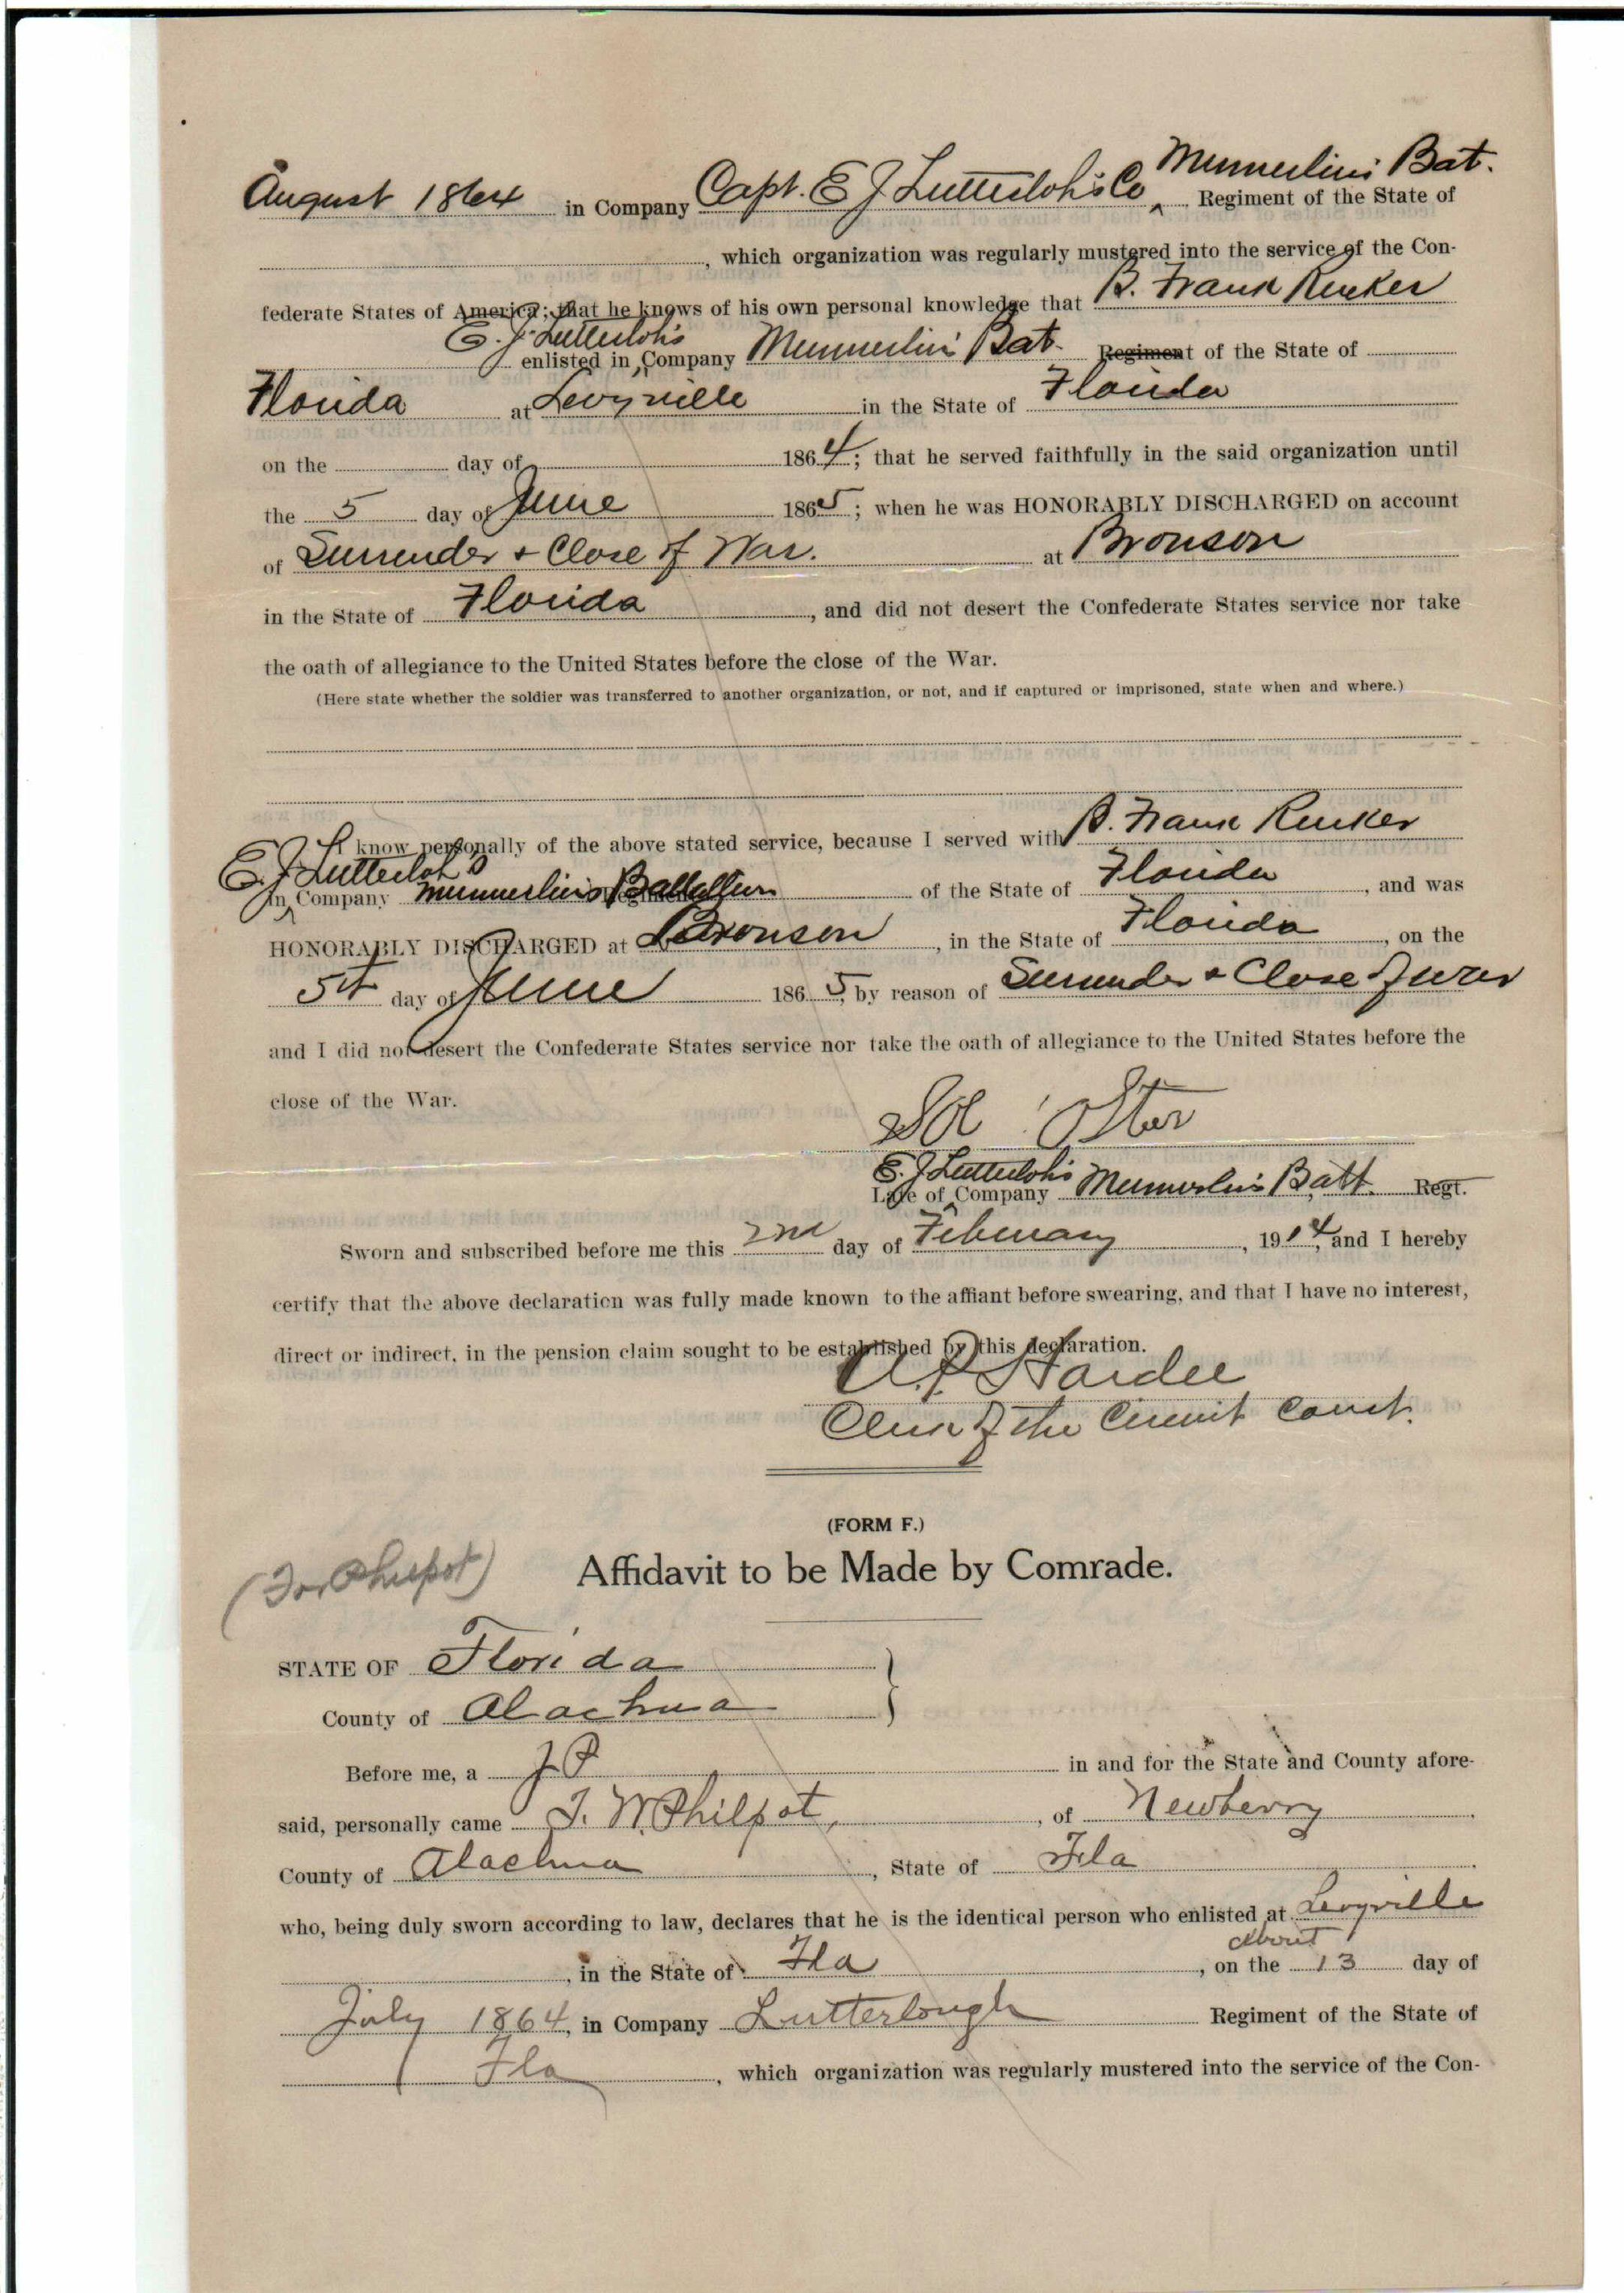 Munnerlin's Bat.
August 1864 in Company Capt. E J Lutterloh's Co ^ Regiment of the State of
, which organization was regularly mustered into the service of the Con-
federate States of America; that he knows of his own personal knowledge that B. Frank Rucker
E. J. Lutterloh's
enlisted in ^ Company Munnerlin's Bat. Regiment of the State of
Florida at Levyville in the State of Florida
on the day of 1864; that he served faithfully in the said organization until
the 5 day of June 1865; when he was HONORABLY DISCHARGED on account
of Surrender & Close of War. at Bronson
in the State of Florida, and did not desert the Confederate States service nor take
the oath of allegiance to the United States before the close of the War.
(Here state whether the soldier was transferred to another organization, or not, and if captured or imprisoned, state when and where.)
I know personally of the above stated service, because I served with B. Frank Rucker
E. J. Lutterloh's
in ^ Company Munnerlin's Battallion of the State of Florida, and was
HONORABLY DISCHARGED at Bronson, in the State of Florida, on the
5th day of June 1865, by reason of Surrender & Close of War
and I did not desert the Confederate States service nor take the oath of allegiance to the United States before the
close of the War.
Sol
E. J Lutterloh's
Late of ^ Company Munnerlin's Batt. Regt.
Sworn and subscribed before me this 2nd day of February, 1914, and I hereby
certify that the above declaration was fully made known to the affiant before swearing, and that I have no interest,
direct or indirect, in the pension claim sought to be established by this declaration.
Hardee
Clerk of the Circuit Court.
(FORM F.)
(For Philpot)
Affidavit to be Made by Comrade.
STATE OF Florida
County of Alachua
Before me, a J P in and for the State and County afore-
said, personally came J. W. Philpot, of Newberry
County of Alachua, State of Fla
who, being duly sworn according to law, declares that he is the identical person who enlisted at Levyville
about
, in the State of Fla, on the 13 day of
July 1864, in Company Lutterlough Regiment of the State of
Fla, which organization was regularly mustered into the service of the Con-